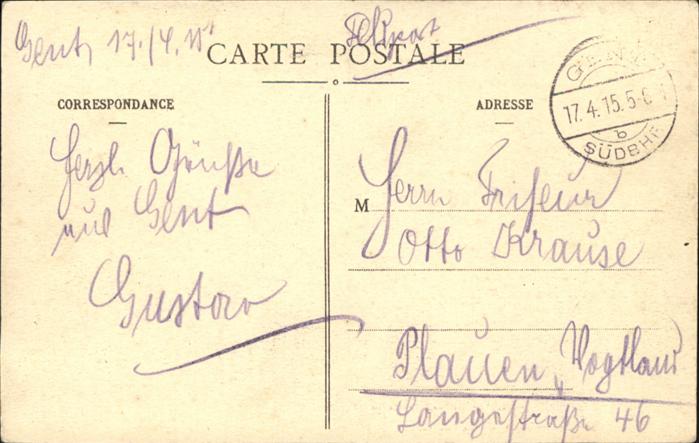 Gent, 17./4.15.
Feldpost
CARTE POSTALE
GENT
17.4.15.5-6
b
SÜDBHF
CORRESPONDANCE
ADRESSE
Herzl. Grüße
aus Gent
Gustav
M
Herrn Friseur
Otto Krause
Plauen, Vogtland
Langestraße 46